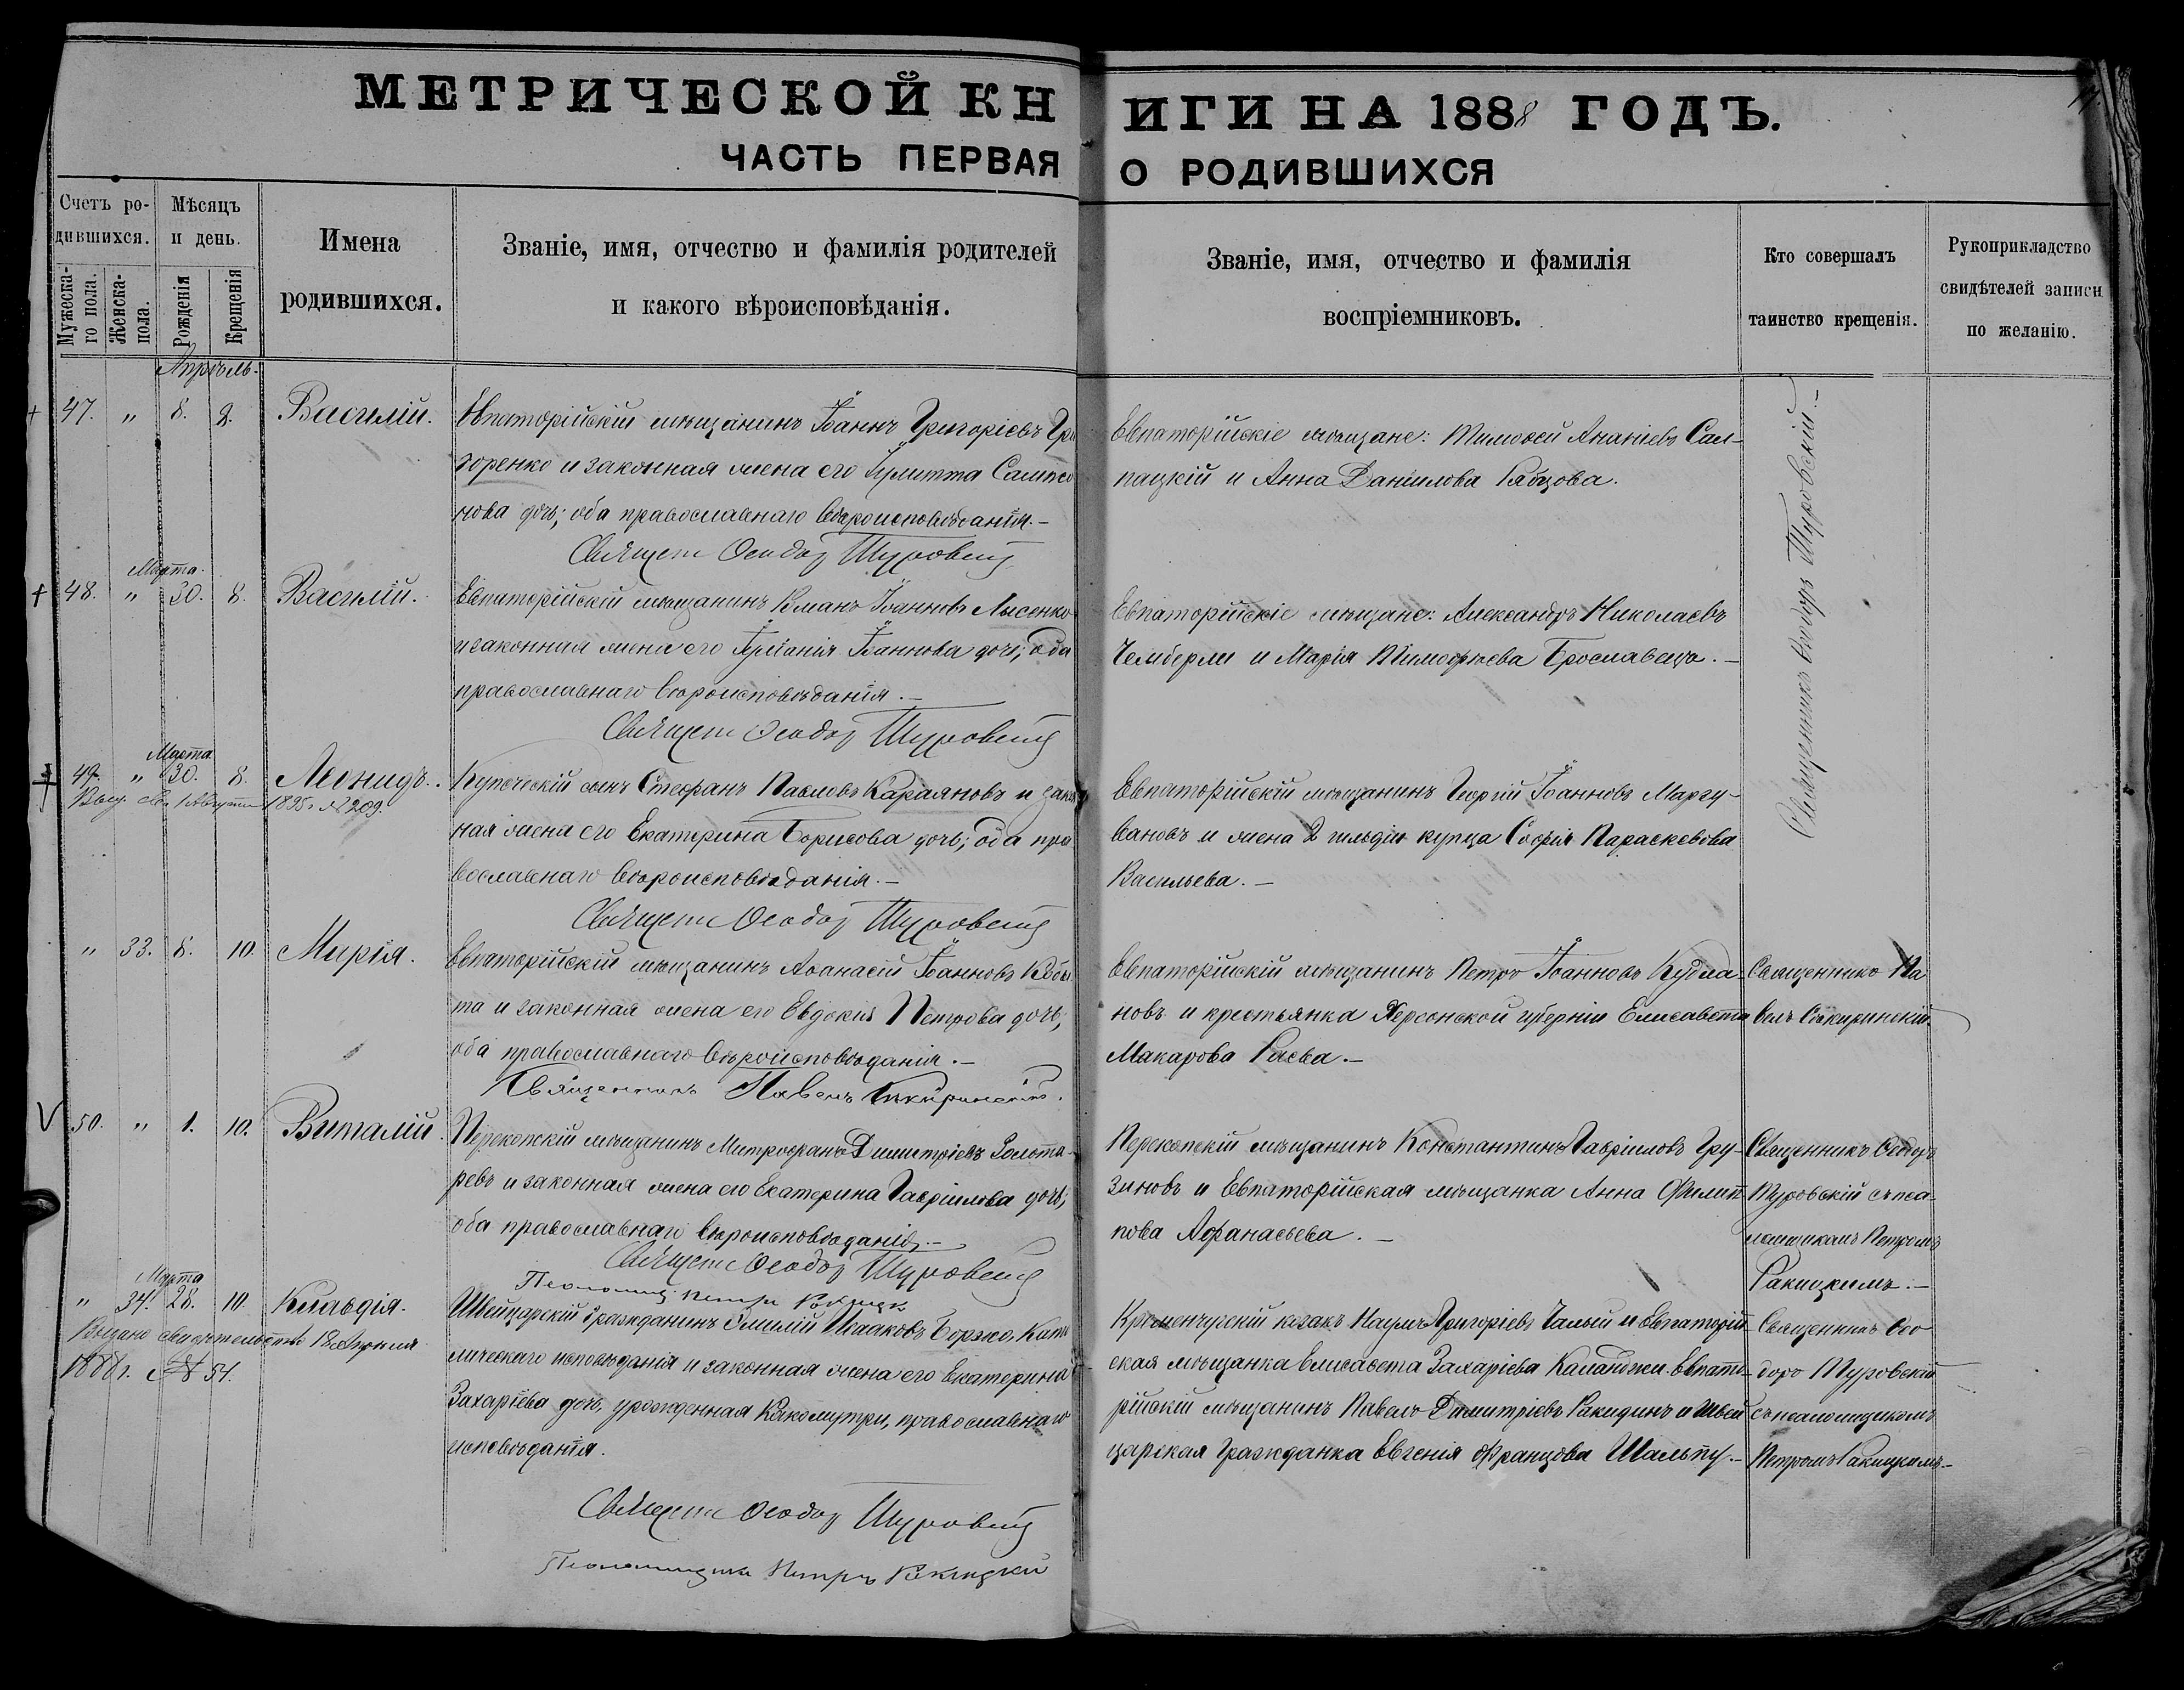 МЕТРИЧЕСКОЙ КНИГИ НА 1888 ГОДЪ.
ЧАСТЬ ПЕРВАЯ О РОДИВШИХСЯ
Счетъ ро-
дившихся.
Мужеска-
го пола.
Женска-
пола.
Мѣсяцъ
и день.
Рожденія
Крещенія
Имена
родившихся.
Званіе, имя, отчество и фамилія родителей
и какого вѣроисповѣданія.
Званіе, имя, отчество и фамилія
воспріемниковъ.
Кто совершалъ
таинство крещенія.
Рукоприкладство
свидѣтелей записи
по желанію.
Апрѣль.
47. " 8. 8. Василій.
Евпаторійскій мѣщанинъ Іоаннъ Григоріевъ Гри
горенко и законная жена его Іулитта Сампсо
нова дочь; оба православнаго вѣроисповѣданія.-
Священ Ѳеодоръ Туровскій
Евпаторійскіе мѣщане: Тимоѳей Ананіевъ Сал-
пацкій и Анна Даніилова Рябцова.
Священникъ Ѳеодоръ Туровскій.-
Марта.
48. " 30. 8. Василій.
Евпаторійскій мѣщанинъ Романъ Іоанновъ Лысенко
и законная жена его Іуліанія Іоаннова дочь; оба
православнаго вѣроисповѣданія.-
Священ Ѳеодоръ Туровскій
Евпаторійскіе мѣщане: Александръ Николаевъ
Чемберли и Марія Тимоѳеева Брославецъ.-
Марта
49. " 30. 8. Леонидъ.
Выд. св. 1 Августа 1895 г. № 209.
Купеческій сынъ Стефанъ Павловъ Караяновъ и закон
ная жена его Екатерина Борисова дочь; оба пра
вославнаго вѣроисповѣданія.-
Священ Ѳеодоръ Туровскій
Евпаторійскій мѣщанинъ Георгій Іоанновъ Маргу-
вановъ и жена 2 гильдіи купца Софія Параскевова
Васильева.-
" 33. 8. 10. Марія.
Евпаторійскій мѣщанинъ Аѳанасій Іоанновъ Кобы
та и законная жена его Евдокія Петрова дочь;
оба православнаго вѣроисповѣданія.-
Священникъ Павелъ Сикиринскій.
Евпаторійскій мѣщанинъ Петръ Іоанновъ Кудла-
новъ и крестьянка Херсонской губерніи Елисавета
Макарова Раева.-
Священникъ Па
велъ Сикиринскій
50. " 1. 10. Виталій.
Перекопскій мѣщанинъ Митрофанъ Димитріевъ Золота-
ревъ и законная жена его Екатерина Гавріилова дочь;
оба православнаго вѣроисповѣданія.-
Священ Ѳеодоръ Туровскій
Псаломщ Петръ Ракицк
Перекопскій мѣщанинъ Константинъ Гавріиловъ Гру-
зиновъ и Евпаторійская мѣщанка Анна Филип-
пова Афанасьева.-
Священникъ Ѳеодоръ
Туровскій съ пса-
ломщикомъ Петромъ
Ракицкимъ.-
Марта
" 34. 28. 10. Клавдія.
Выдано свидѣтельство 18 Апрѣля
1888 г. № 51.
Швейцарскій гражданинъ Эмилій Исааковъ Боржо, Като
лическаго исповѣданія и законная жена его Екатерина
Захаріева дочь, урожденная Какомутри, православнаго
исповѣданія.
Священ Ѳеодоръ Туровскій
Псаломщикъ Петръ Ракицкій
Кременчугскій козакъ Наумъ Григоріевъ Чалый и Евпаторій-
ская мѣщанка Елисавета Захаріева Евпато-
рійскій мѣщанинъ Павелъ Димитріевъ Ракидинъ и Швей
царская гражданка Евгенія Францова Шальпу.-
Священникъ Ѳео
доръ Туровскій
съ псаломщикомъ
Петромъ Ракицкимъ.-